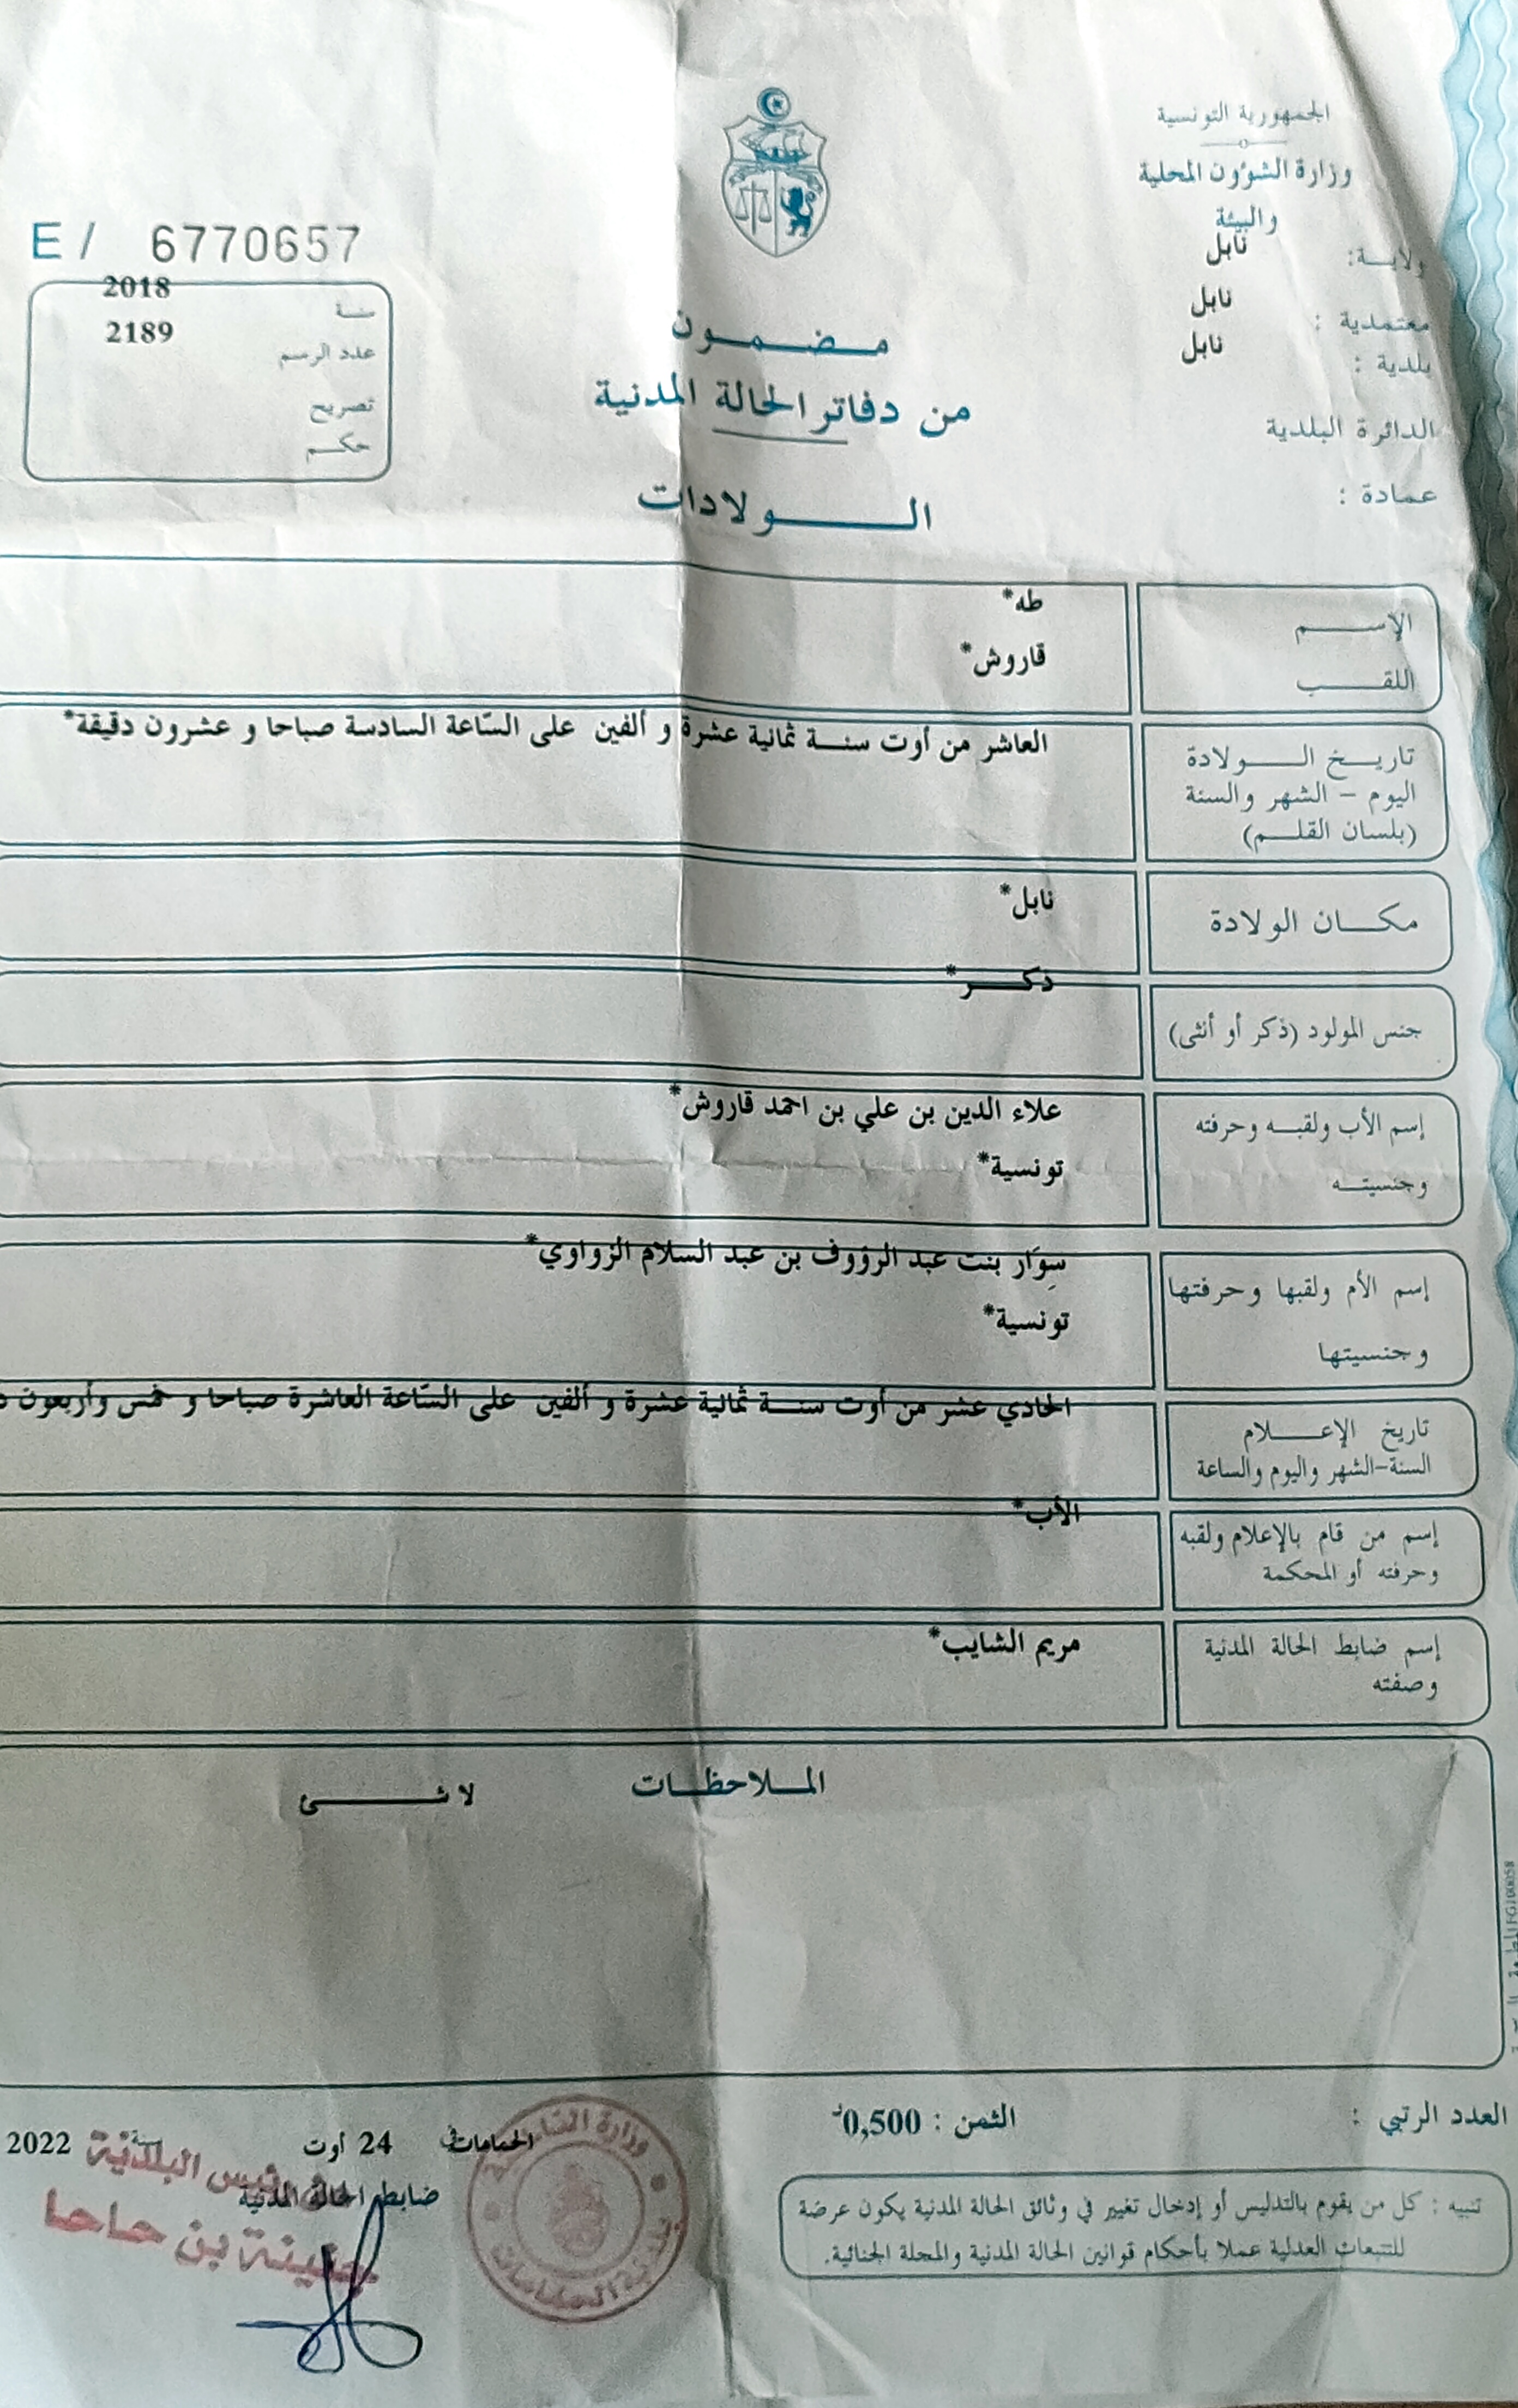 الجمهورية التونسية
وزارة الشؤون المحلية
والبيئة
ولاية: نابل
معتمدية : نابل
بلدية : نابل
الدائرة البلدية
عمادة :
E / 6770657
سنة 2018
عدد الرسم 2189
تصريح
حكم
مضمون
من دفاتر الحالة المدنية
الولادات
الإسم طه*
اللقب قاروش*
تاريخ الولادة
اليوم – الشهر والسنة
(بلسان القلم)
العاشر من أوت سنة ثمانية عشرة و ألفين على السّاعة السادسة صباحا و عشرون دقيقة*
مكان الولادة نابل*
جنس المولود (ذكر أو أنثى) ذكر*
إسم الأب ولقبه وحرفته علاء الدين بن علي بن احمد قاروش*
وجنسيته تونسية*
إسم الأم ولقبها وحرفتها سِوَار بنت عبد الرؤوف بن عبد السلام الزواوي*
وجنسيتها تونسية*
تاريخ الإعلام
السنة-الشهر واليوم والساعة
الحادي عشر من أوت سنة ثمانية عشرة و ألفين على السّاعة العاشرة صباحا و خمس وأربعون د
إسم من قام بالإعلام ولقبه
وحرفته أو المحكمة
الأب*
إسم ضابط الحالة المدنية
وصفته
مريم الشايب*
الملاحظات لا شئ
العدد الرتبي :
الثمن : 0,500د
الحمامات في 24 أوت سنة 2022
ضابط الحالة المدنية
رئيس البلدية
تنبيه : كل من يقوم بالتدليس أو إدخال تغيير في وثائق الحالة المدنية يكون عرضة
للتتبعات العدلية عملا بأحكام قوانين الحالة المدنية والمجلة الجنائية.